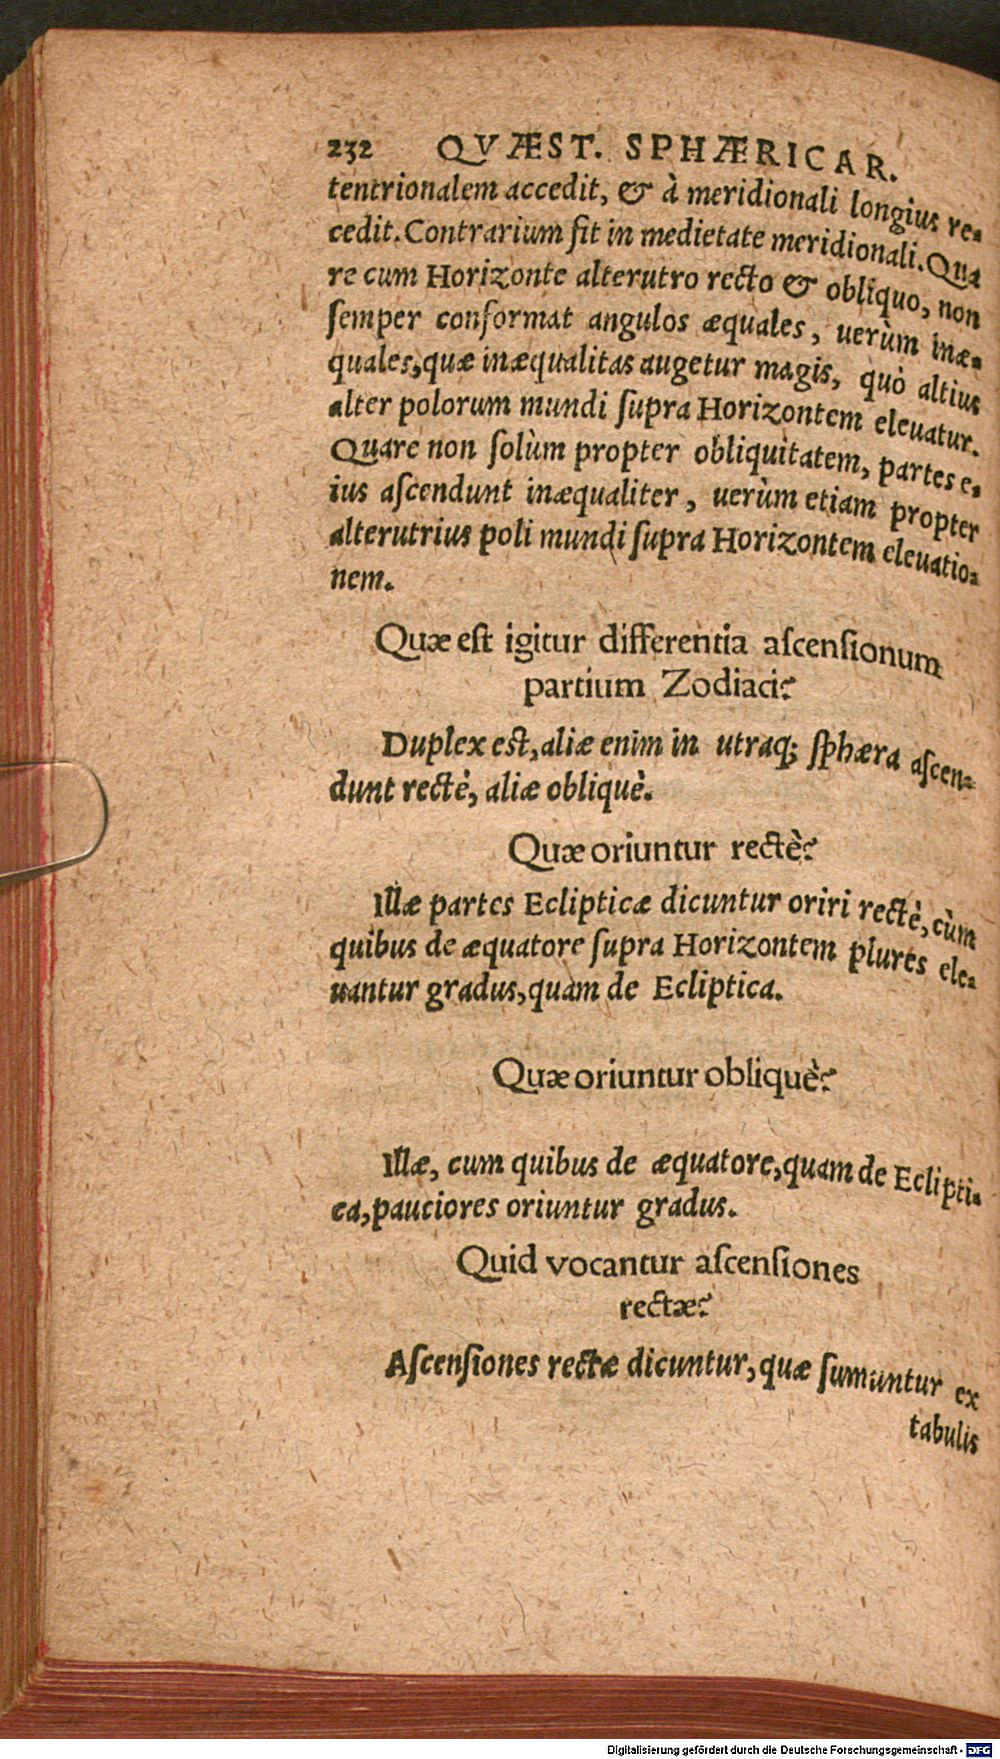 232 QVÆST. SPHÆRICAR.
tentrionalem accedit, & à meridionali longius re-
cedit. Contrarium fit in medietate meridionali. Qua
re cum Horizonte alterutro recto & obliquo, non
ſemper conformat angulos æquales, uerùm inæ-
quales, quæ inæqualitas augetur magis, quò altius
alter polorum mundi ſupra Horizontem eleuatur.
Quare non ſolùm propter obliquitatem, partes e-
ius aſcendunt inæqualiter, uerùm etiam propter
alterutrius poli mundi ſupra Horizontem eleuatio-
nem.
Quæ eſt igitur differentia aſcenſionum
partium Zodiaci?
Duplex eſt, aliæ enim in utraq; ſphæra aſcen-
dunt rectè, aliæ obliquè.
Quæ oriuntur rectè?
Illæ partes Eclipticæ dicuntur oriri rectè, cùm
quibus de æquatore ſupra Horizontem plures ele-
uantur gradus, quàm de Ecliptica.
Quæ oriuntur obliquè?
Illæ, cum quibus de æquatore, quam de Ecliptī-
ca, pauciores oriuntur gradus.
Quid vocantur aſcenſiones
rectæ?
Aſcenſiones rectæ dicuntur, quæ ſumuntur ex
tabulis
Digitalisierung gefördert durch die Deutsche Forschungsgemeinschaft - DFG